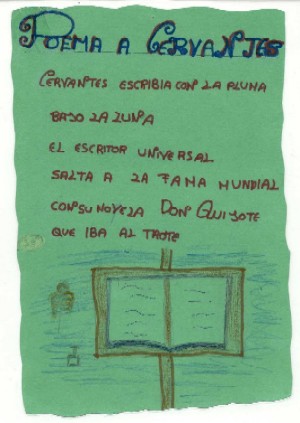 POEMA A CERVANTES
CERVANTES ESCRIBIA CON LA PLUMA
BAJO LA LUNA
EL ESCRITOR UNIVERSAL
SALTA A LA FAMA MUNDIAL
CON SU NOVELA DON QUIJOTE
QUE IBA AL TROTE